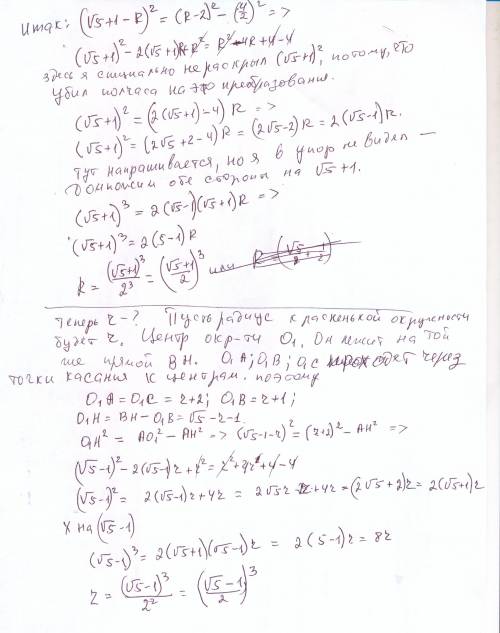 Итак: (√5+1-R)² = (R-2)² - (4/2)² =>
(√5+1)² - 2(√5+1)R + R² = R² - 4R + 4 - 4
Здесь я специально не раскрыл (√5+1)², потому, что
убил полчаса на это преобразование.
(√5+1)² = (2(√5+1)-4) R =>
(√5+1)² = (2√5+2-4)R = (2√5-2)R = 2(√5-1)R.
Тут напрашивается, но я в упор не видел —
Домножим обе стороны на √5+1.
(√5+1)³ = 2(√5-1)(√5+1)R =>
(√5+1)³ = 2(5-1)R
R = (√5+1)³/2³ = ((√5+1)/2)³ или
Теперь r-? Пусть радиус маленькой окружности
будет r. Центр окр-ти O₁. Он лежит на той
же прямой BH. O₁A; O₁B; O₁C проходят через
точки касания к центрам. поэтому
O₁A = O₁C = r+2; O₁B = r+1;
O₁H = BH - O₁B = √5 - r - 1.
O₁H² = AO₁² - AH² => (√5-1-r)² = (r+2)² - AH² =>
(√5-1)² - 2(√5-1)r + r² = r² + 4r + 4 - 4
(√5-1)² = 2(√5-1)r + 4r = 2√5r - 2r + 4r = (2√5+2)r = 2(√5+1)r
X на (√5-1)
(√5-1)³ = 2(√5+1)(√5-1)r = 2(5-1)r = 8r
r = (√5-1)³/2³ = ((√5-1)/2)³